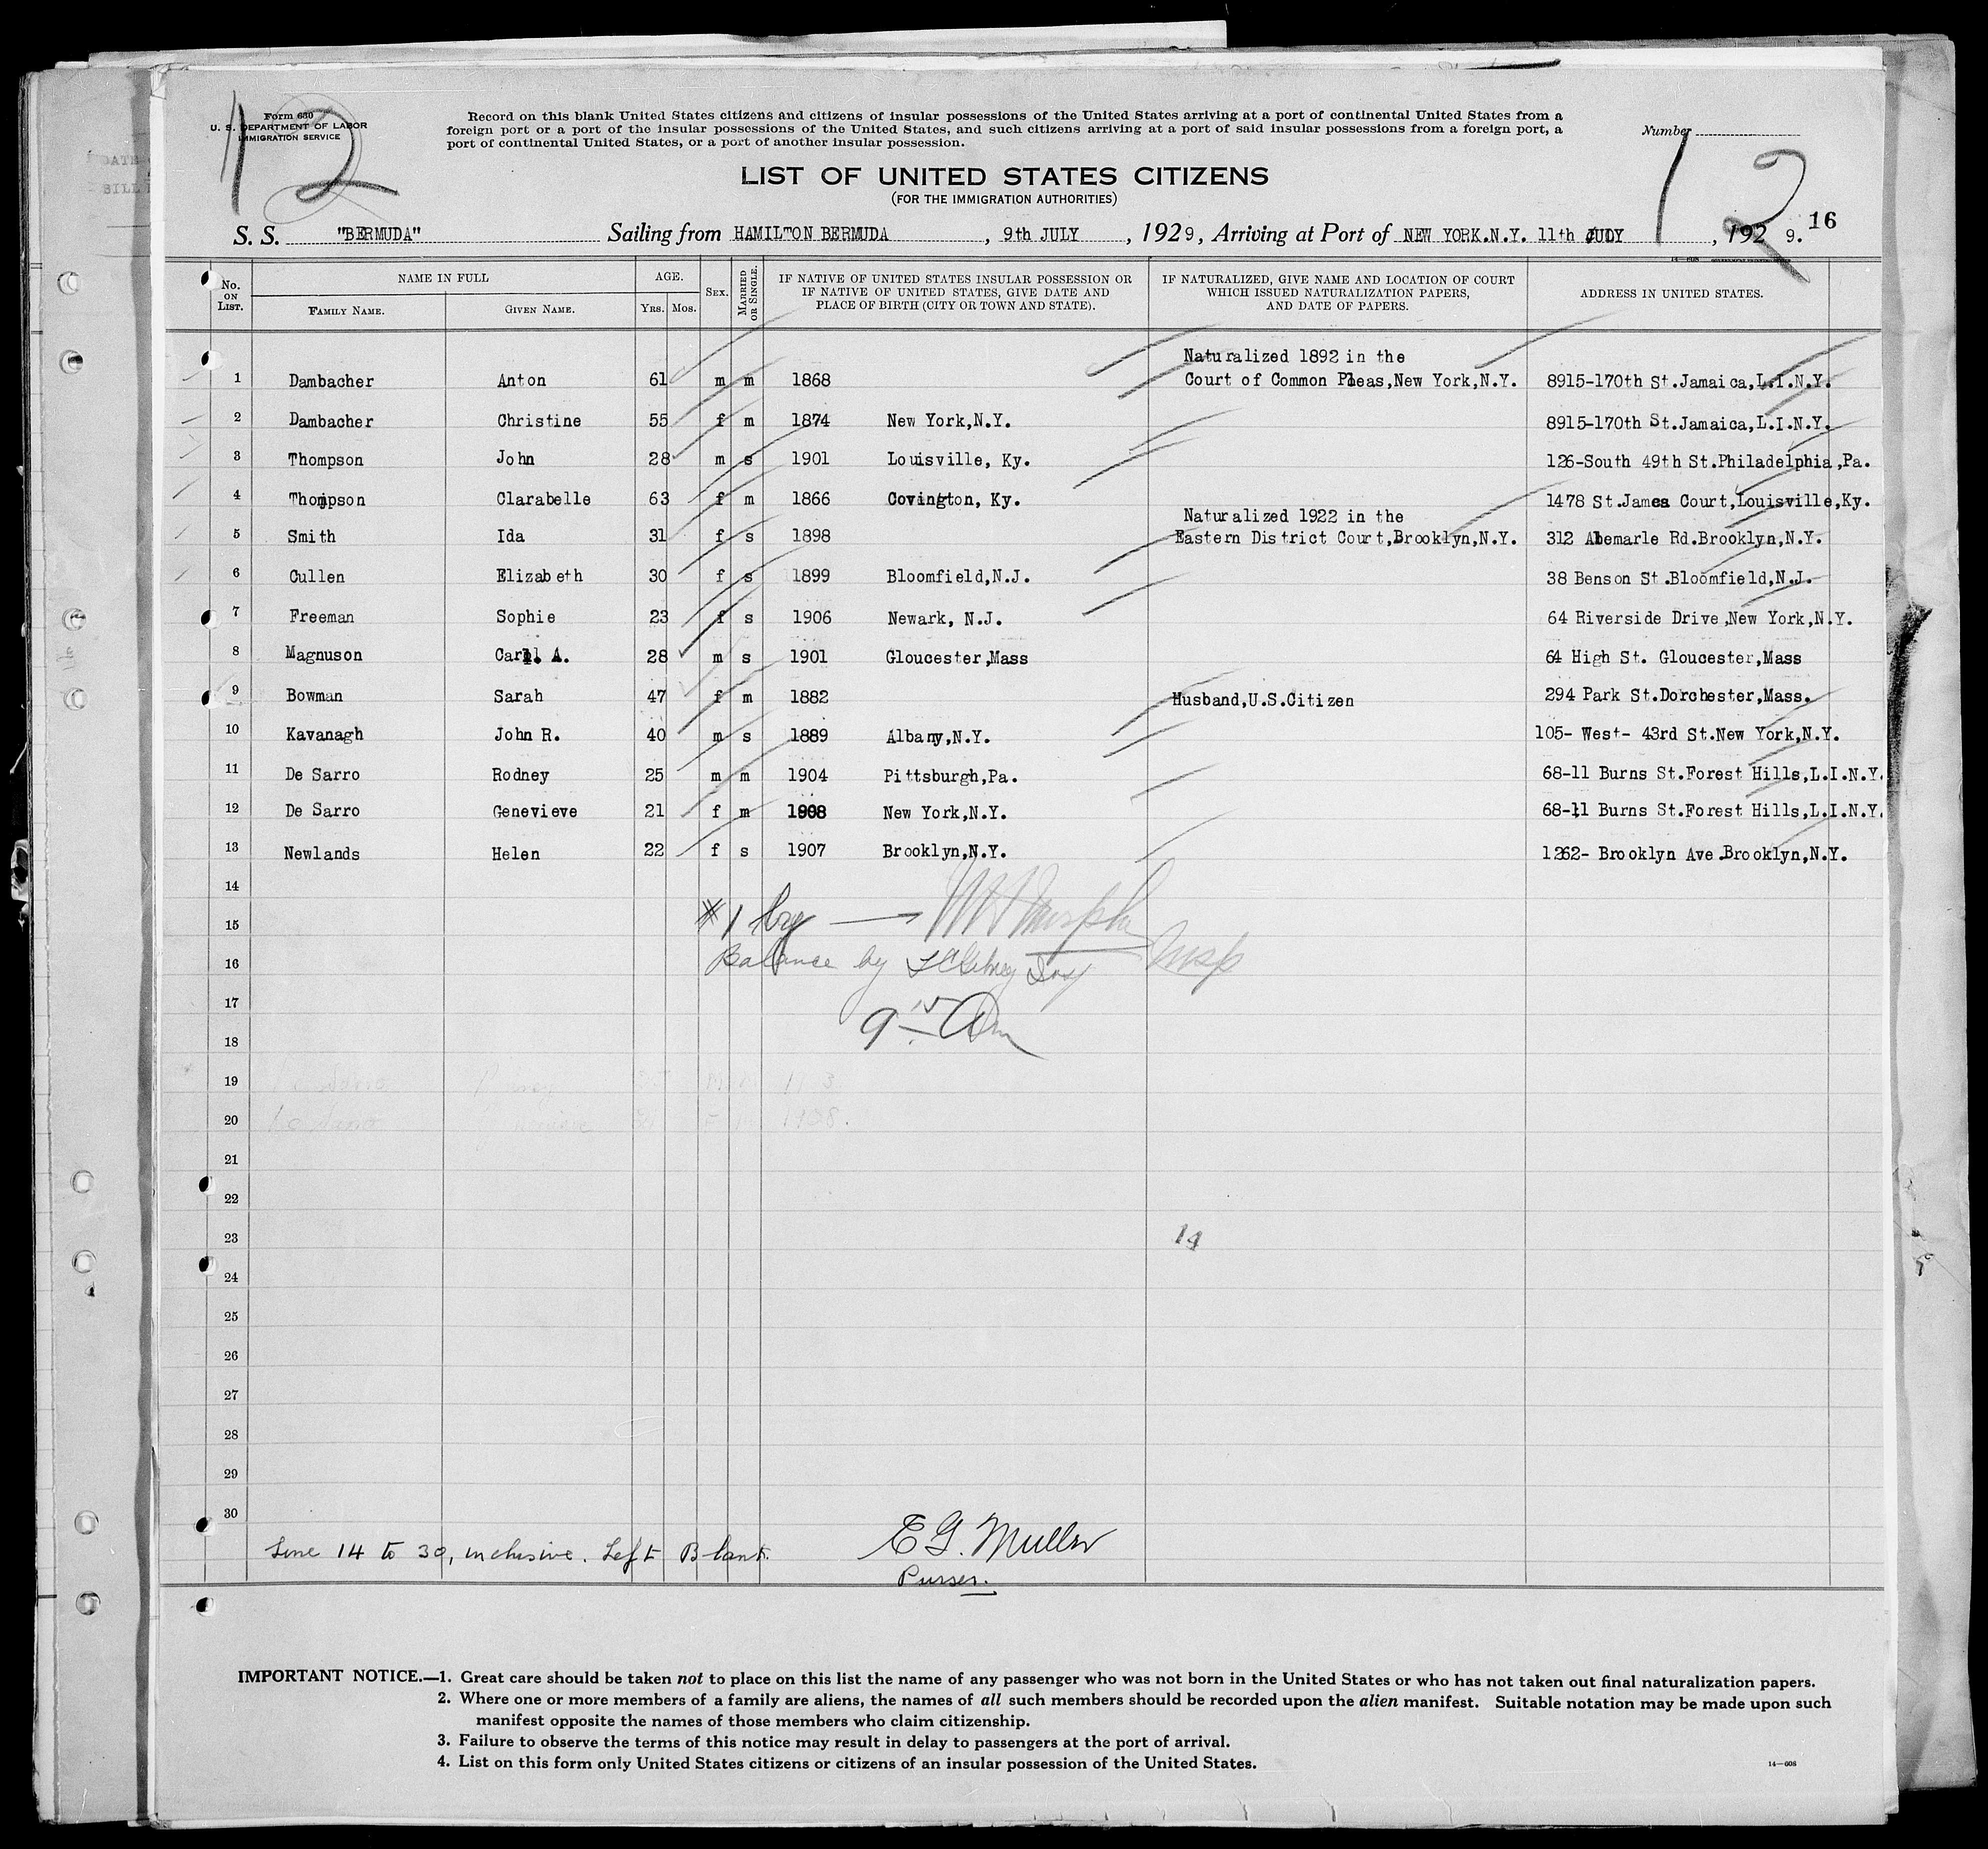 12
Form 630
U. S. DEPARTMENT OF LABOR
IMMIGRATION SERVICE
Record on this blank United States citizens and citizens of insular possessions of the United States arriving at a port of continental United States from a
foreign port or a port of the insular possessions of the United States, and such citizens arriving at a port of said insular possessions from a foreign port, a
port of continental United States, or a port of another insular possession.
Number
12
LIST OF UNITED STATES CITIZENS
(FOR THE IMMIGRATION AUTHORITIES)
16
S. S. "BERMUDA" Sailing from HAMILTON BERMUDA, 9th JULY, 1929, Arriving at Port of NEW YORK.N.Y. 11th JULY, 1929.
No. ON LIST. NAME IN FULL FAMILY NAME. GIVEN NAME. AGE. YRS. MOS. SEX. MARRIED OR SINGLE. IF NATIVE OF UNITED STATES INSULAR POSSESSION OR IF NATIVE OF UNITED STATES, GIVE DATE AND PLACE OF BIRTH (CITY OR TOWN AND STATE). IF NATURALIZED, GIVE NAME AND LOCATION OF COURT WHICH ISSUED NATURALIZATION PAPERS, AND DATE OF PAPERS. ADDRESS IN UNITED STATES.
Naturalized 1892 in the
1 Dambacher Anton 61 m m 1868 Court of Common Pleas,New York,N.Y. 8915-170th St.Jamaica,L.I.N.Y.
2 Dambacher Christine 55 f m 1874 New York,N.Y. 8915-170th St.Jamaica,L.I.N.Y.
3 Thompson John 28 m s 1901 Louisville, Ky. 126-South 49th St.Philadelphia,Pa.
4 Thompson Clarabelle 63 f m 1866 Covington, Ky. 1478 St.James Court,Louisville,Ky.
Naturalized 1922 in the
5 Smith Ida 31 f s 1898 Eastern District Court,Brooklyn,N.Y. 312 Albemarle Rd.Brooklyn,N.Y.
6 Cullen Elizabeth 30 f s 1899 Bloomfield,N.J. 38 Benson St.Bloomfield,N.J.
7 Freeman Sophie 23 f s 1906 Newark, N.J. 64 Riverside Drive,New York,N.Y.
8 Magnuson Carl A. 28 m s 1901 Gloucester,Mass 64 High St. Gloucester,Mass
9 Bowman Sarah 47 f m 1882 Husband,U.S.Citizen 294 Park St.Dorchester,Mass.
10 Kavanagh John R. 40 m s 1889 Albany,N.Y. 105- West- 43rd St.New York,N.Y.
11 De Sarro Rodney 25 m m 1904 Pittsburgh,Pa. 68-11 Burns St.Forest Hills,L.I.N.Y.
12 De Sarro Genevieve 21 f m 1908 New York,N.Y. 68-11 Burns St.Forest Hills,L.I.N.Y.
13 Newlands Helen 22 f s 1907 Brooklyn,N.Y. 1262- Brooklyn Ave.Brooklyn,N.Y.
14
15 #1 by
16 Balance by
17
18 9 15 Am
19
20
21
22
23 14
24
25
26
27
28
29
30
Line 14 to 30, inclusive. Left Blank. E G. Muller
Purser.
IMPORTANT NOTICE.—1. Great care should be taken not to place on this list the name of any passenger who was not born in the United States or who has not taken out final naturalization papers.
2. Where one or more members of a family are aliens, the names of all such members should be recorded upon the alien manifest. Suitable notation may be made upon such
manifest opposite the names of those members who claim citizenship.
3. Failure to observe the terms of this notice may result in delay to passengers at the port of arrival.
4. List on this form only United States citizens or citizens of an insular possession of the United States.
14—608